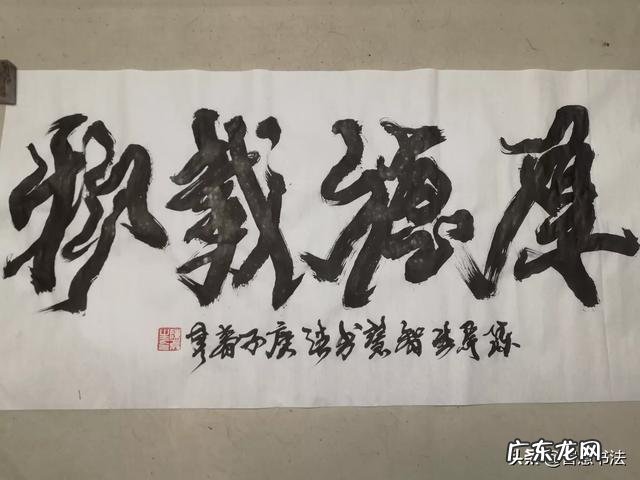 厚德載物
智慧书法庚子春
广东龙网
头条@智慧书法